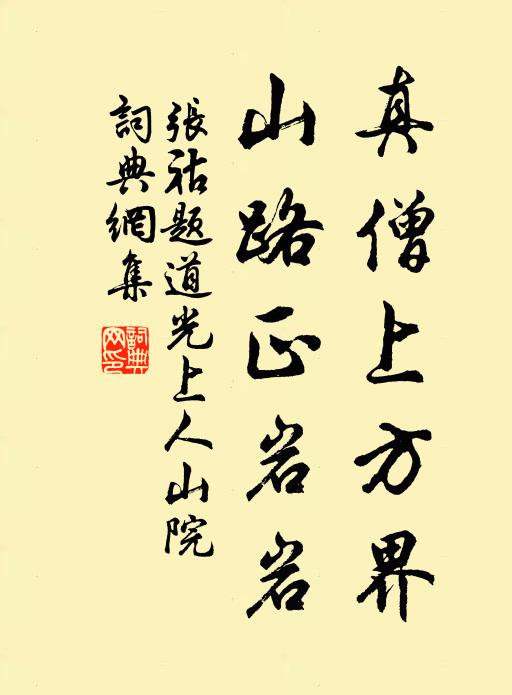 真僧上方界
山路正岩岩
張祜題道光上人山院
詞典網集
詞典
网印